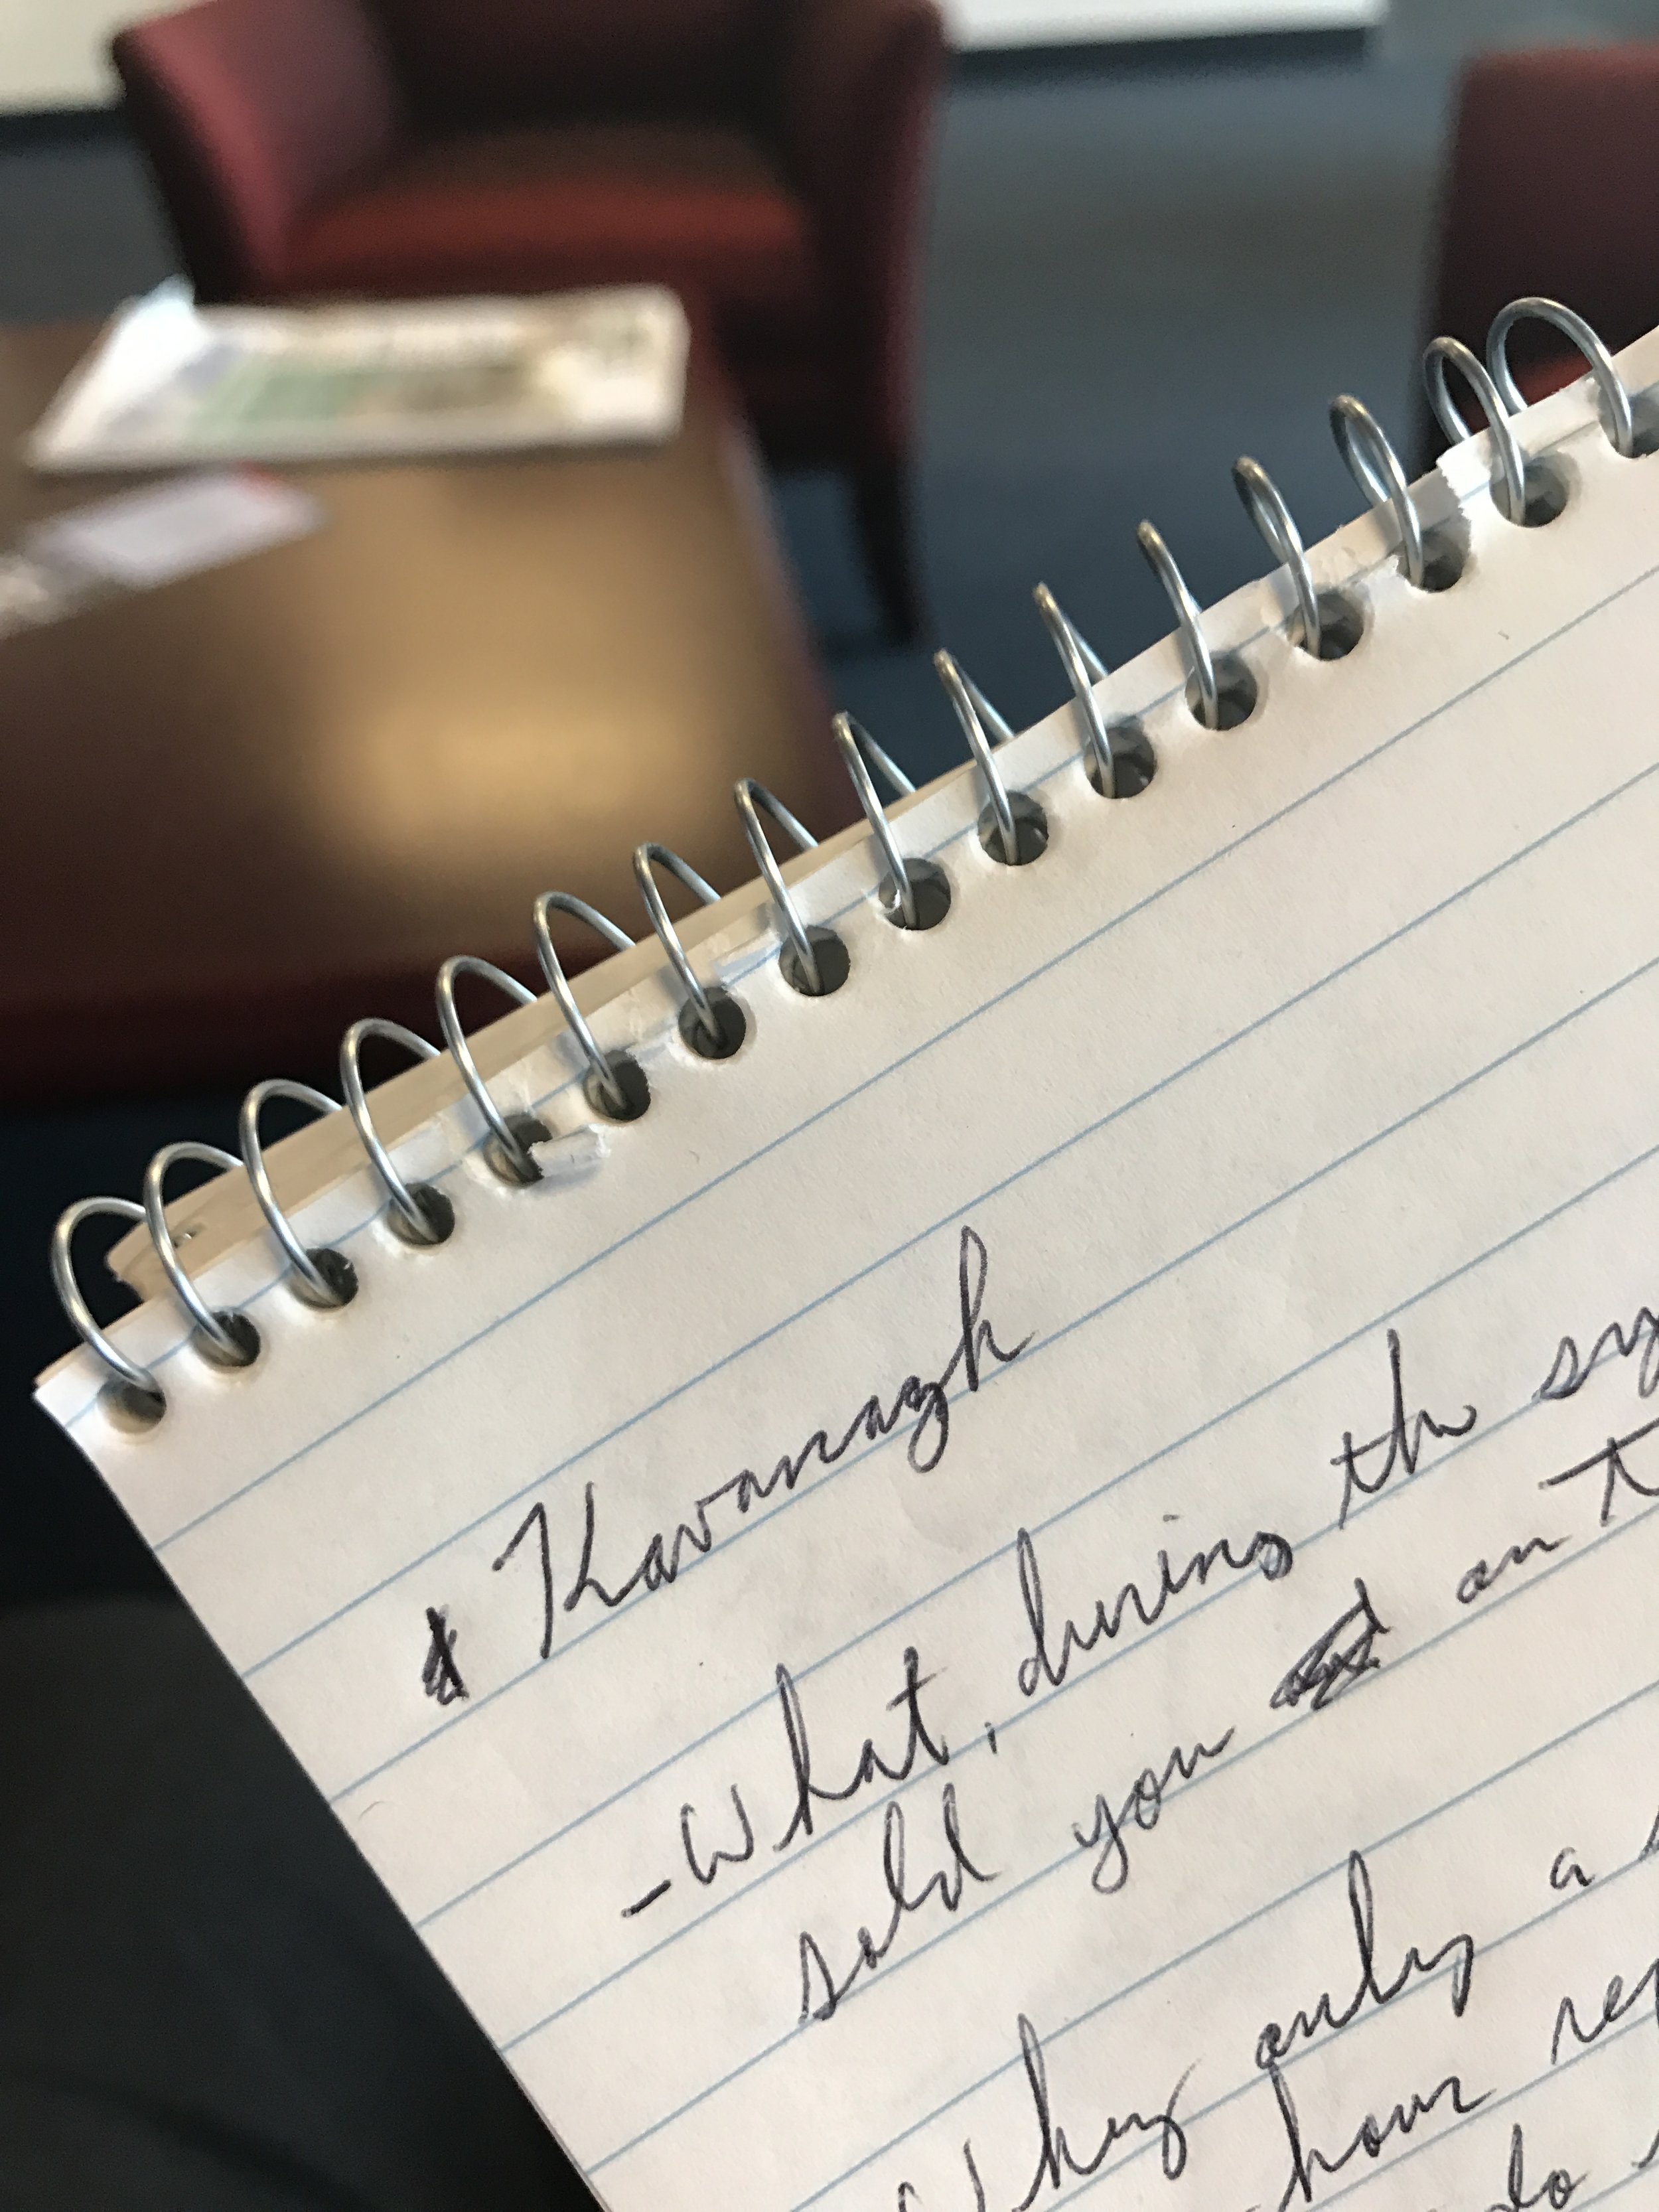 Kavanagh
- What, during the sy
sold you on T
Why only a
hour rep
to